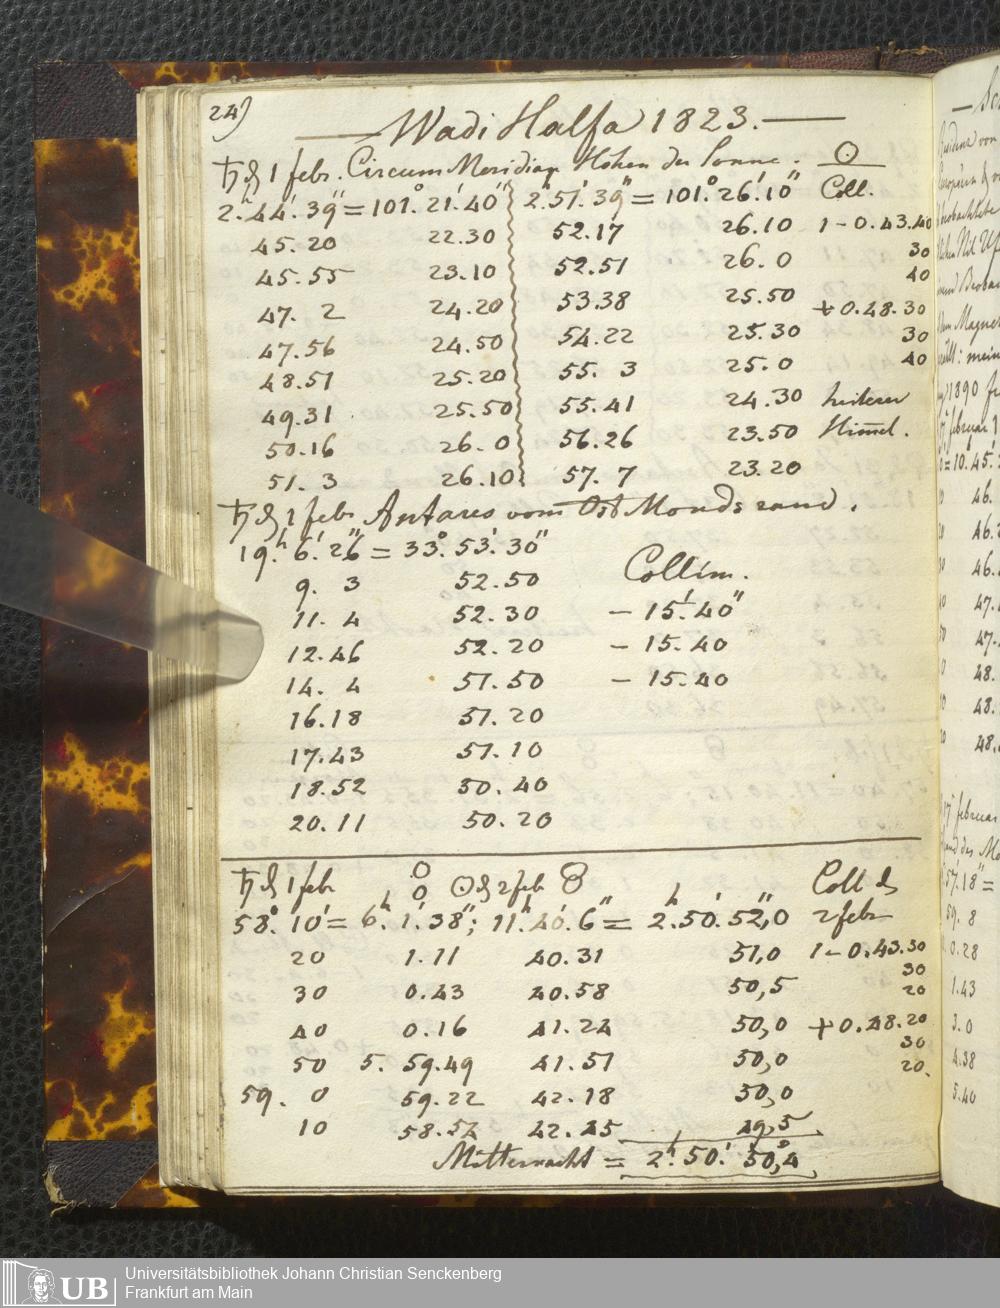 24)
Wadi Halfa 1823.
♄ d 1 febr. Circum Meridian Höhen der Sonne. ☉
2.h 44.' 39" = 101.° 21.' 40" 2.h 51.' 39" = 101.° 26.' 10" Coll.
45.20 22.30 52.17 26.10 1 - 0.43.40
45.55 23.10 52.51 26.0 30
40
47.2 24.20 53.38 25.50 + 0.48.30
47.56 24.50 54.22 25.30 30
48.51 25.20 55.3 25.0 40
49.31 25.50 55.41 24.30 heiterer
50.16 26.0 56.26 23.50 Himel.
51.3 26.10 57.7 23.20
♄ d 1 febr Antares vom Ost Monds rand.
19.h 6.' 26" = 33.° 53.' 30"
9. 3 52.50 Collim.
11. 4 52.30 - 15.' 40"
12.46 52.20 - 15.40
14. 4 51.50 - 15.40
16.18 51.20
17.43 51.10
18.52 50.40
20.11 50.20
♄ d 1 febr ☉ d 2 feb Coll d
58.° 10' = 6.h 1.' 38"; 11.h 40.' 6" = 2.h 50.' 52,"0 2 febr
20 1.11 40.31 51,0 1 - 0.43.30
30 0.43 40.58 50,5 30
20
40 0.16 41.24 50,0 + 0.48.20
50 5. 59.49 41.51 50,0 30
20.
59. 0 59.22 42.18 50,0
10 58.54 42.45 49,5
Mitternacht = 2.h 50.' 50,"4
UB
Universitätsbibliothek Johann Christian Senckenberg
Frankfurt am Main